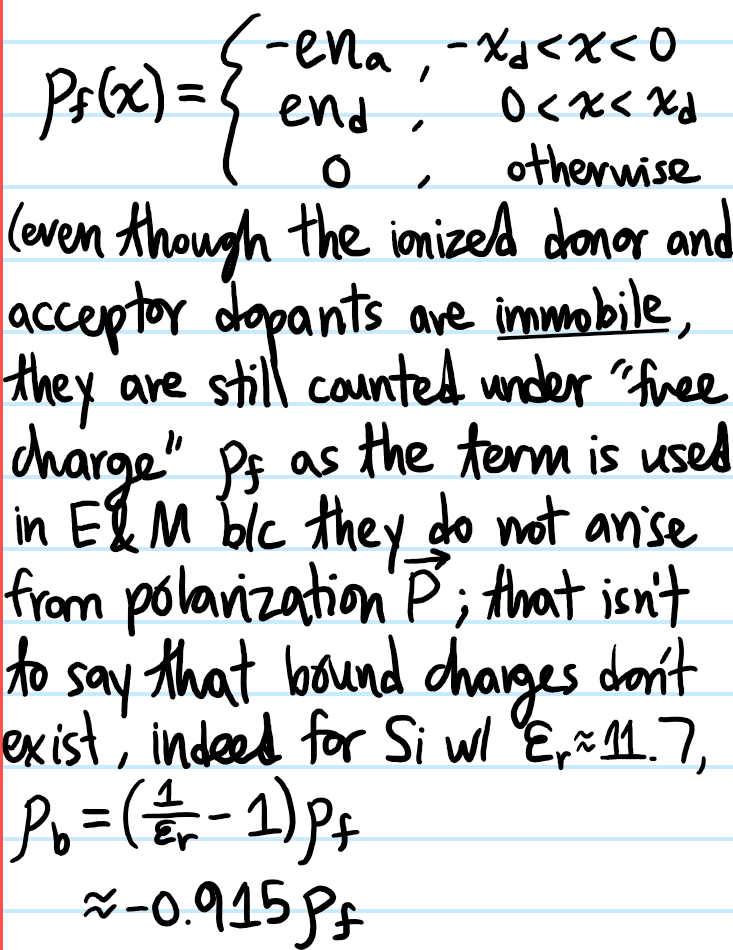 ρf(x) = { -en_a , -x_d < x < 0
en_d , 0 < x < x_d
0 , otherwise
(even though the ionized donor and
acceptor dopants are immobile,
they are still counted under "free
charge" ρf as the term is used
in E&M b/c they do not arise
from polarization P⃗ ; that isn't
to say that bound charges don't
exist, indeed for Si w/ εr ≈ 11.7,
ρb = (1/εr - 1) ρf
≈ -0.915 ρf